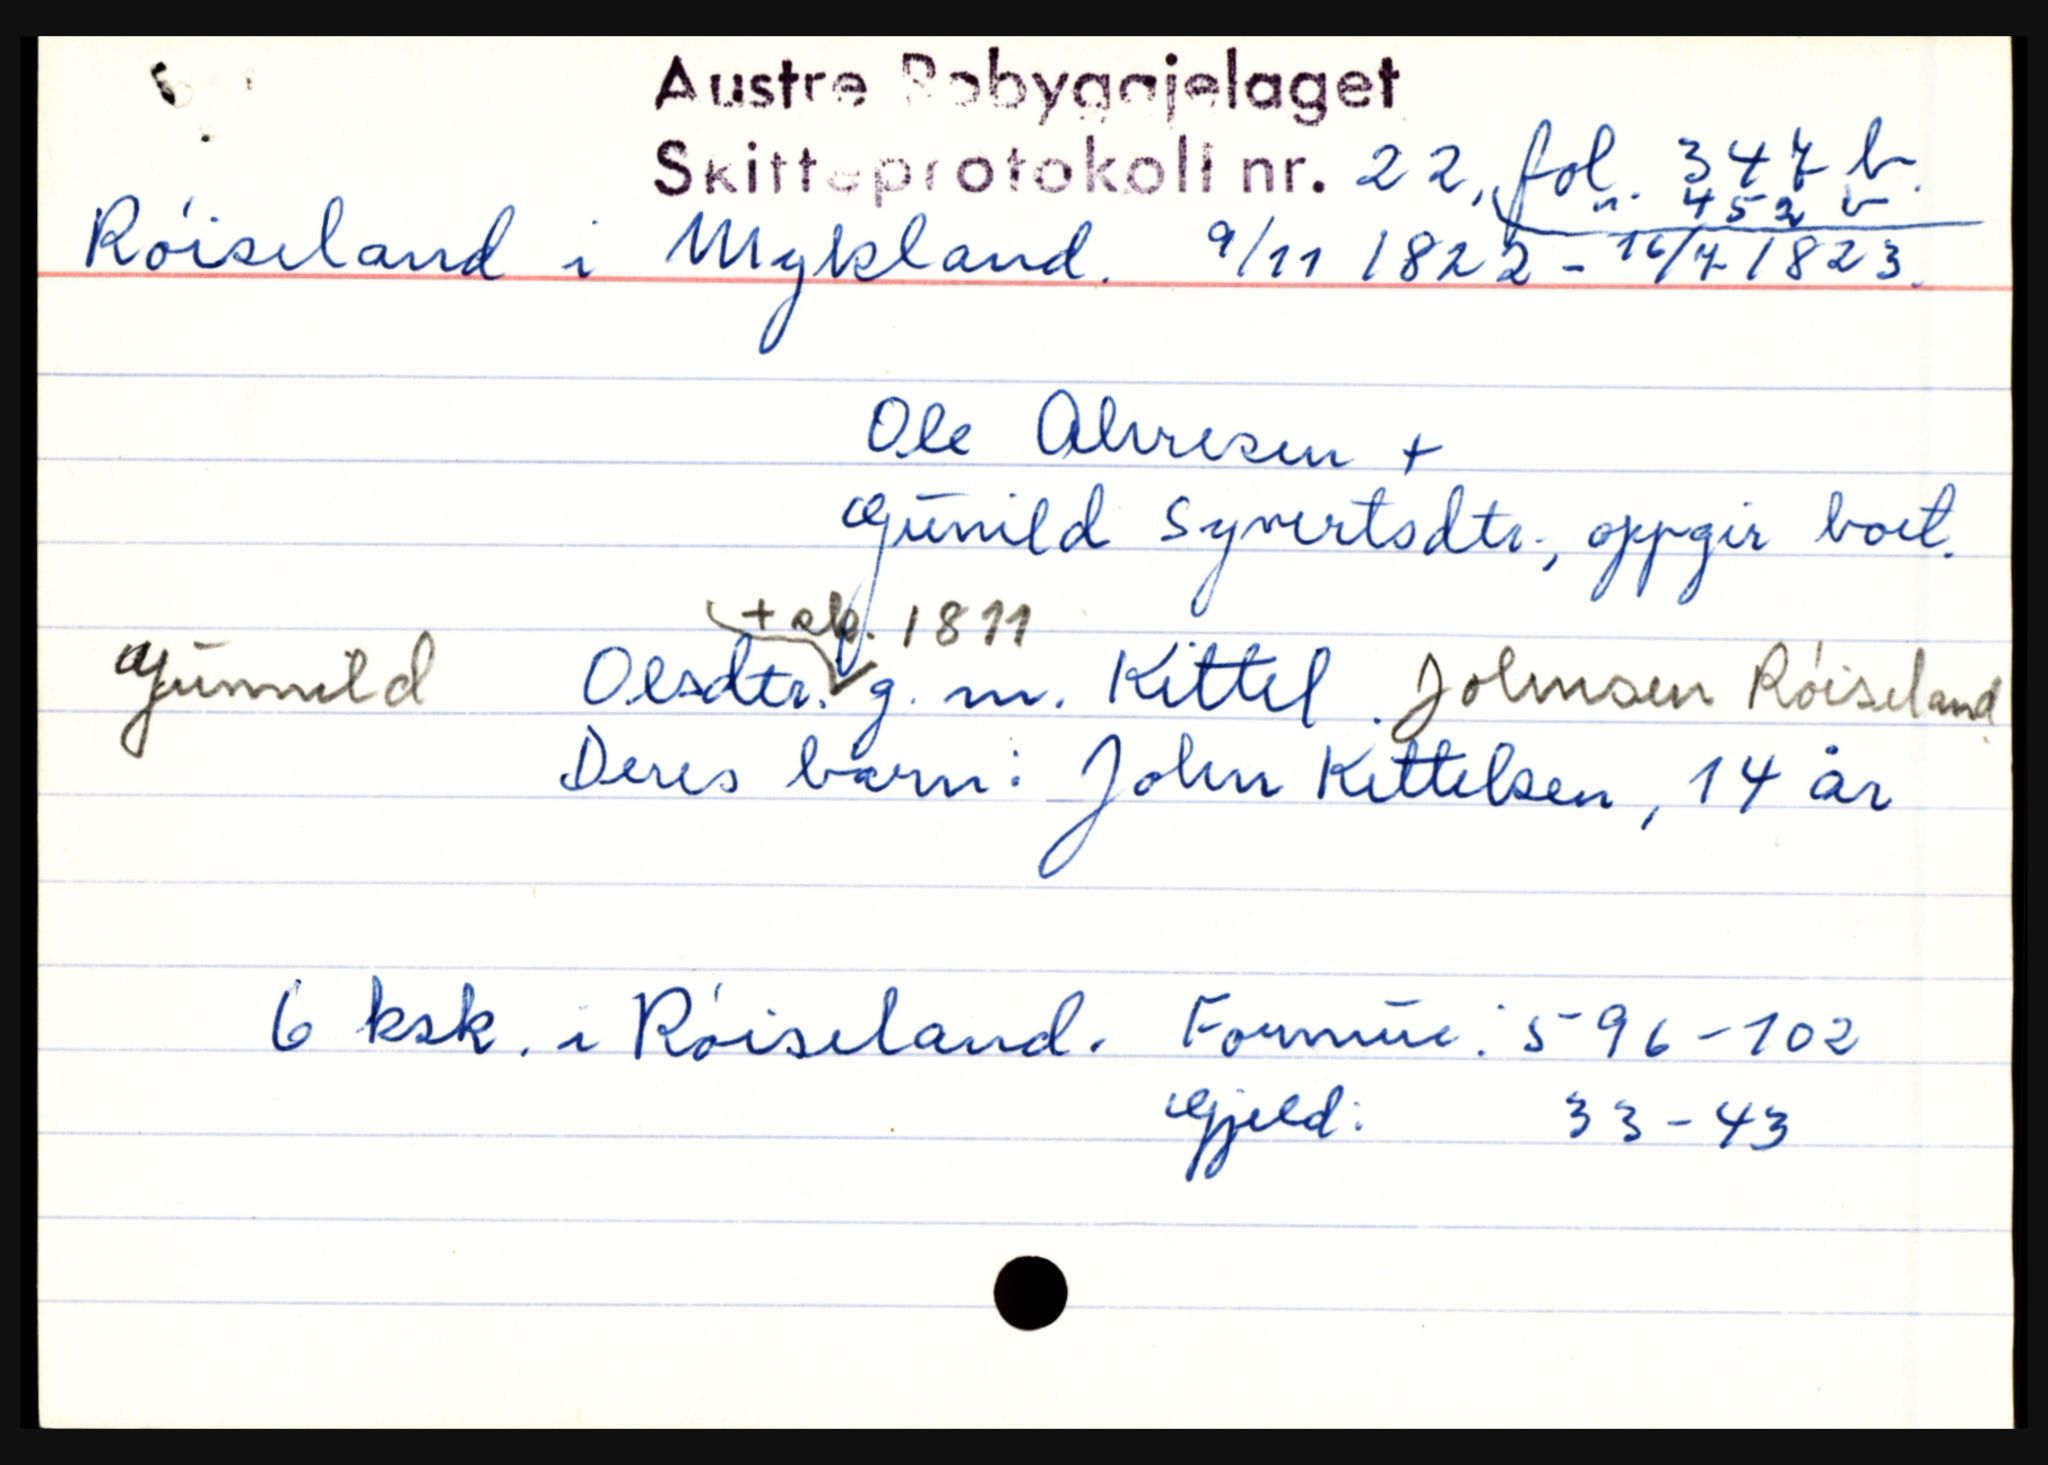 Austre Robyggjelaget
Skifteprotokoll nr. 22, fol. 347 b.
" 452 b
Róiseland i Mykland. 9/11 1822 - 16/7 1823.
Ole Alvresen +
Gŭnild Syvertsdtr., oppgir boet.
+ sk. 1811
Gŭnnild Olesdtr. g. m. Kittel Johnsen Róiseland
Deres barn: John Kittelsen, 14 år
6 ksk. i Róiseland. Formŭe: 596-102
Gjeld: 33-43